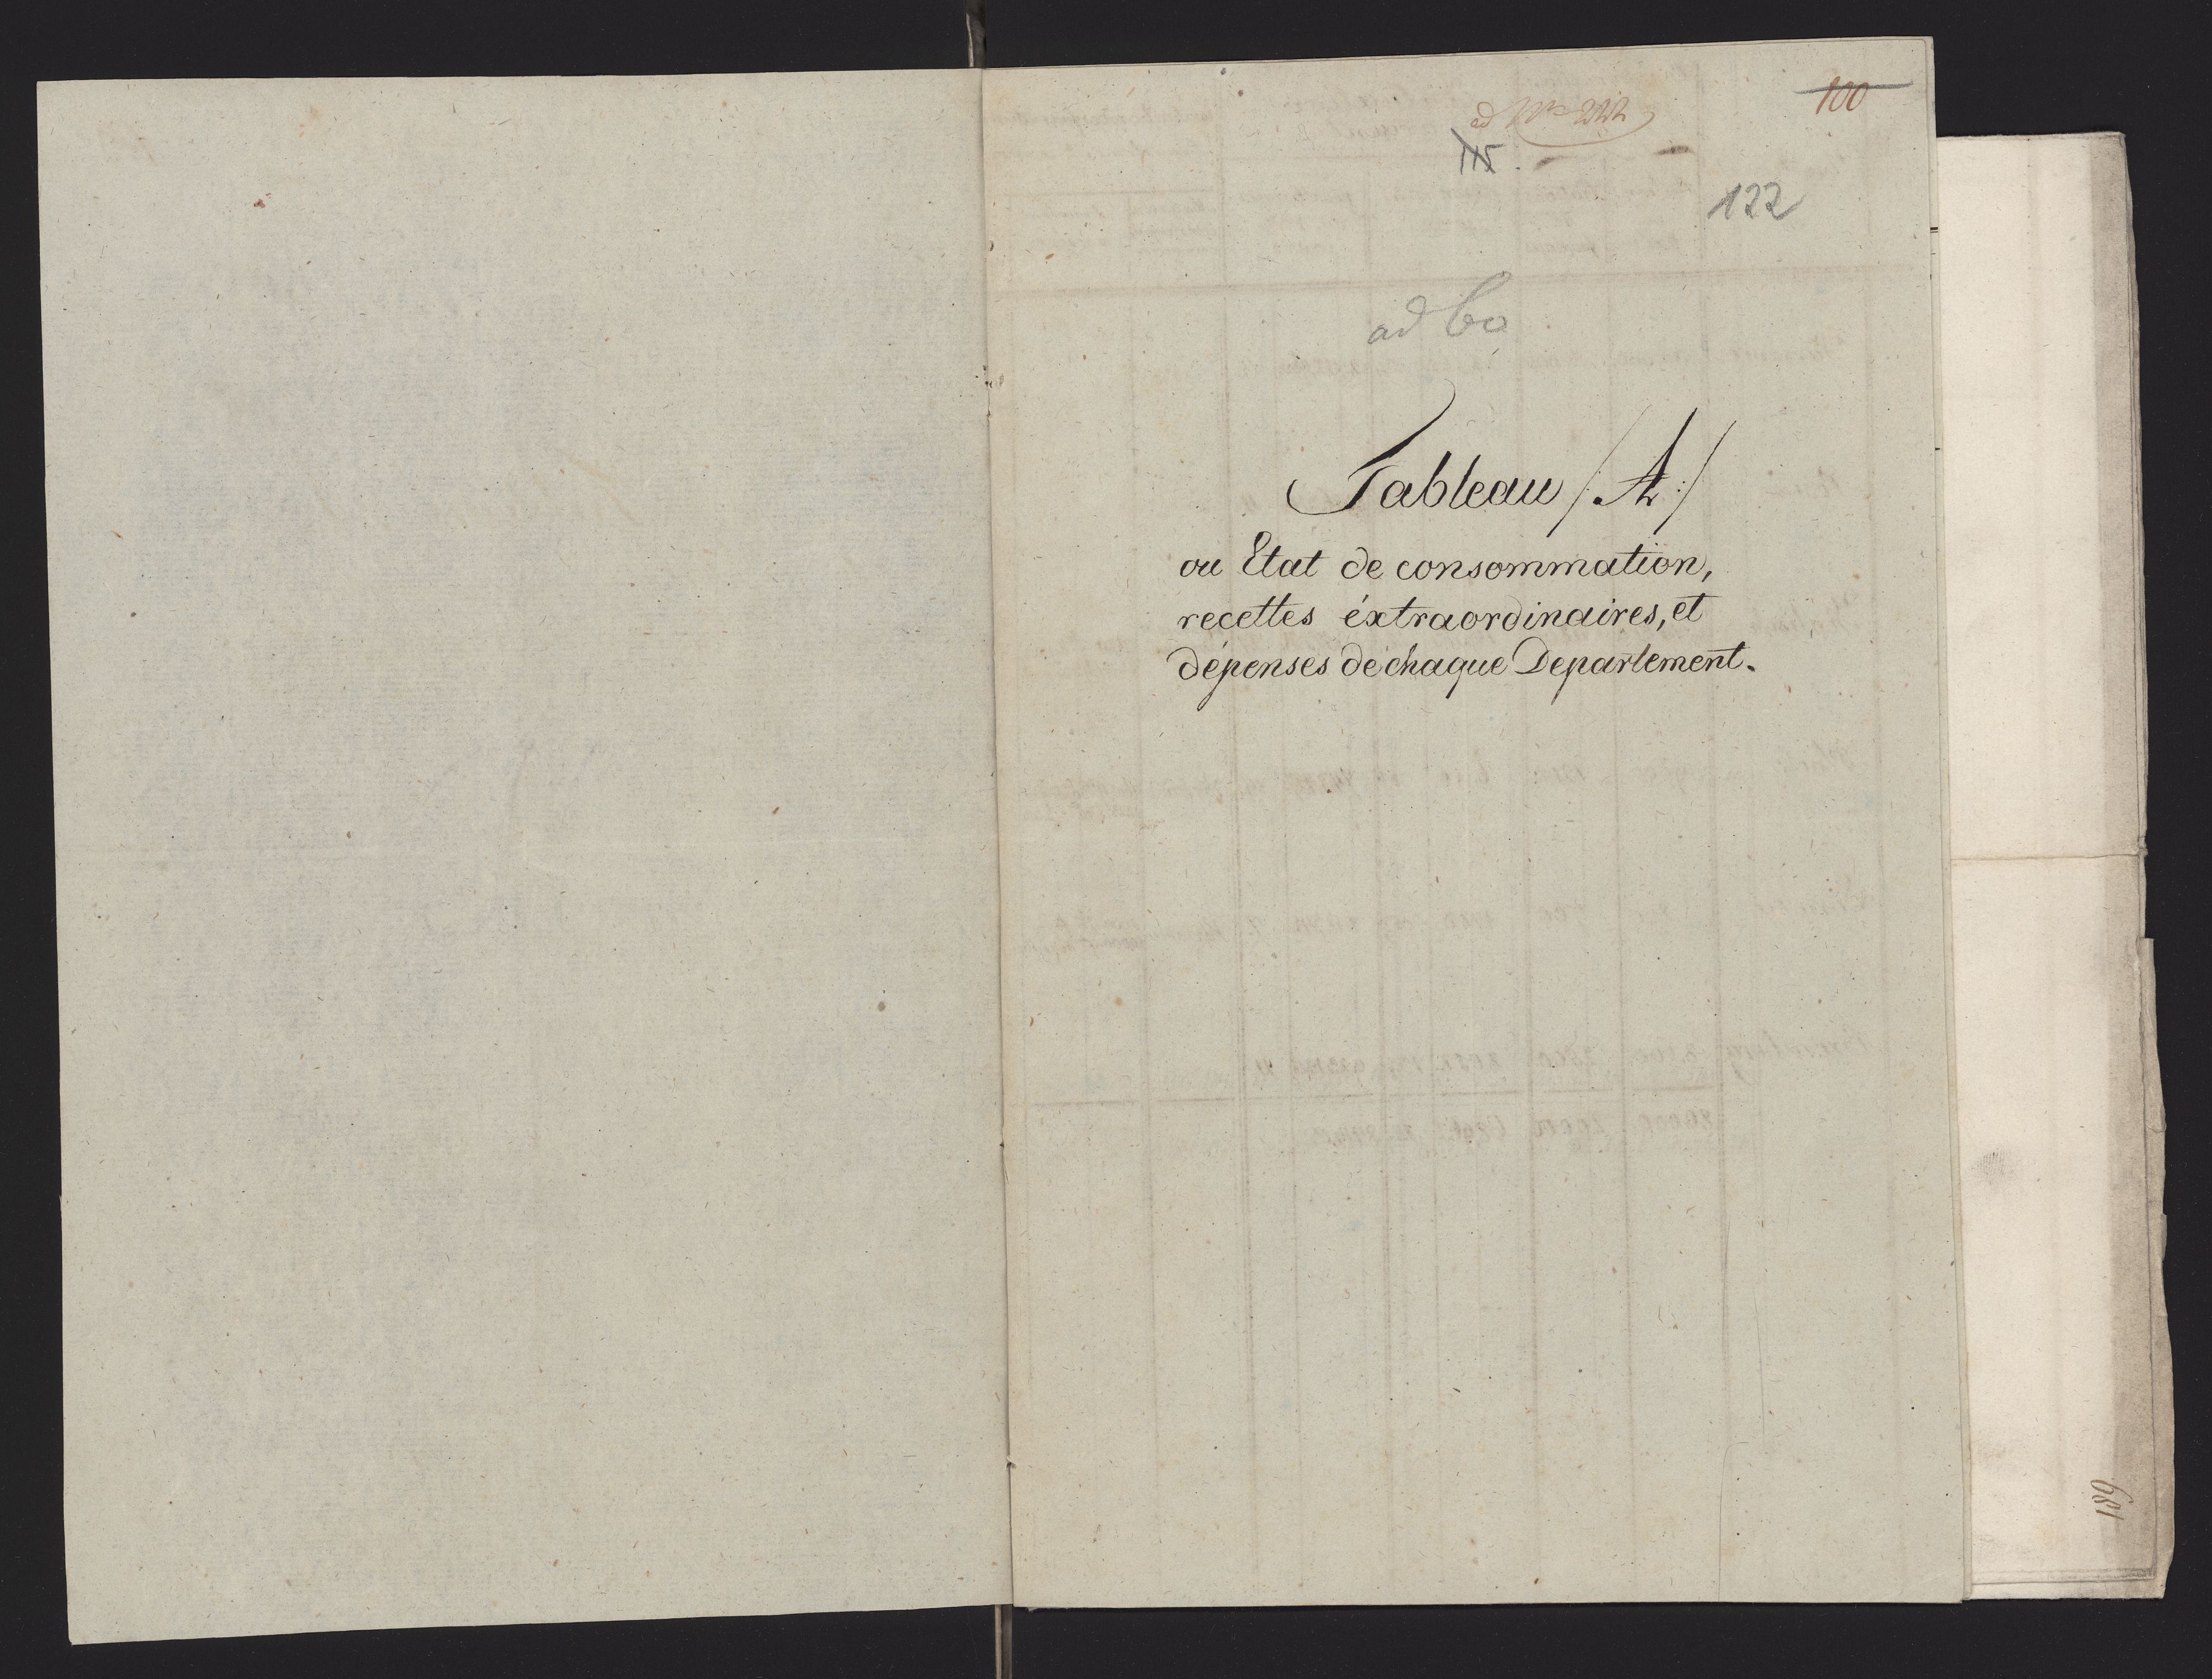 100
115.
122
ad
Tableau /: A :/
ou Etat de consommation,
recettes éxtraordinaires, et
dépenses de chaque Departement.
189